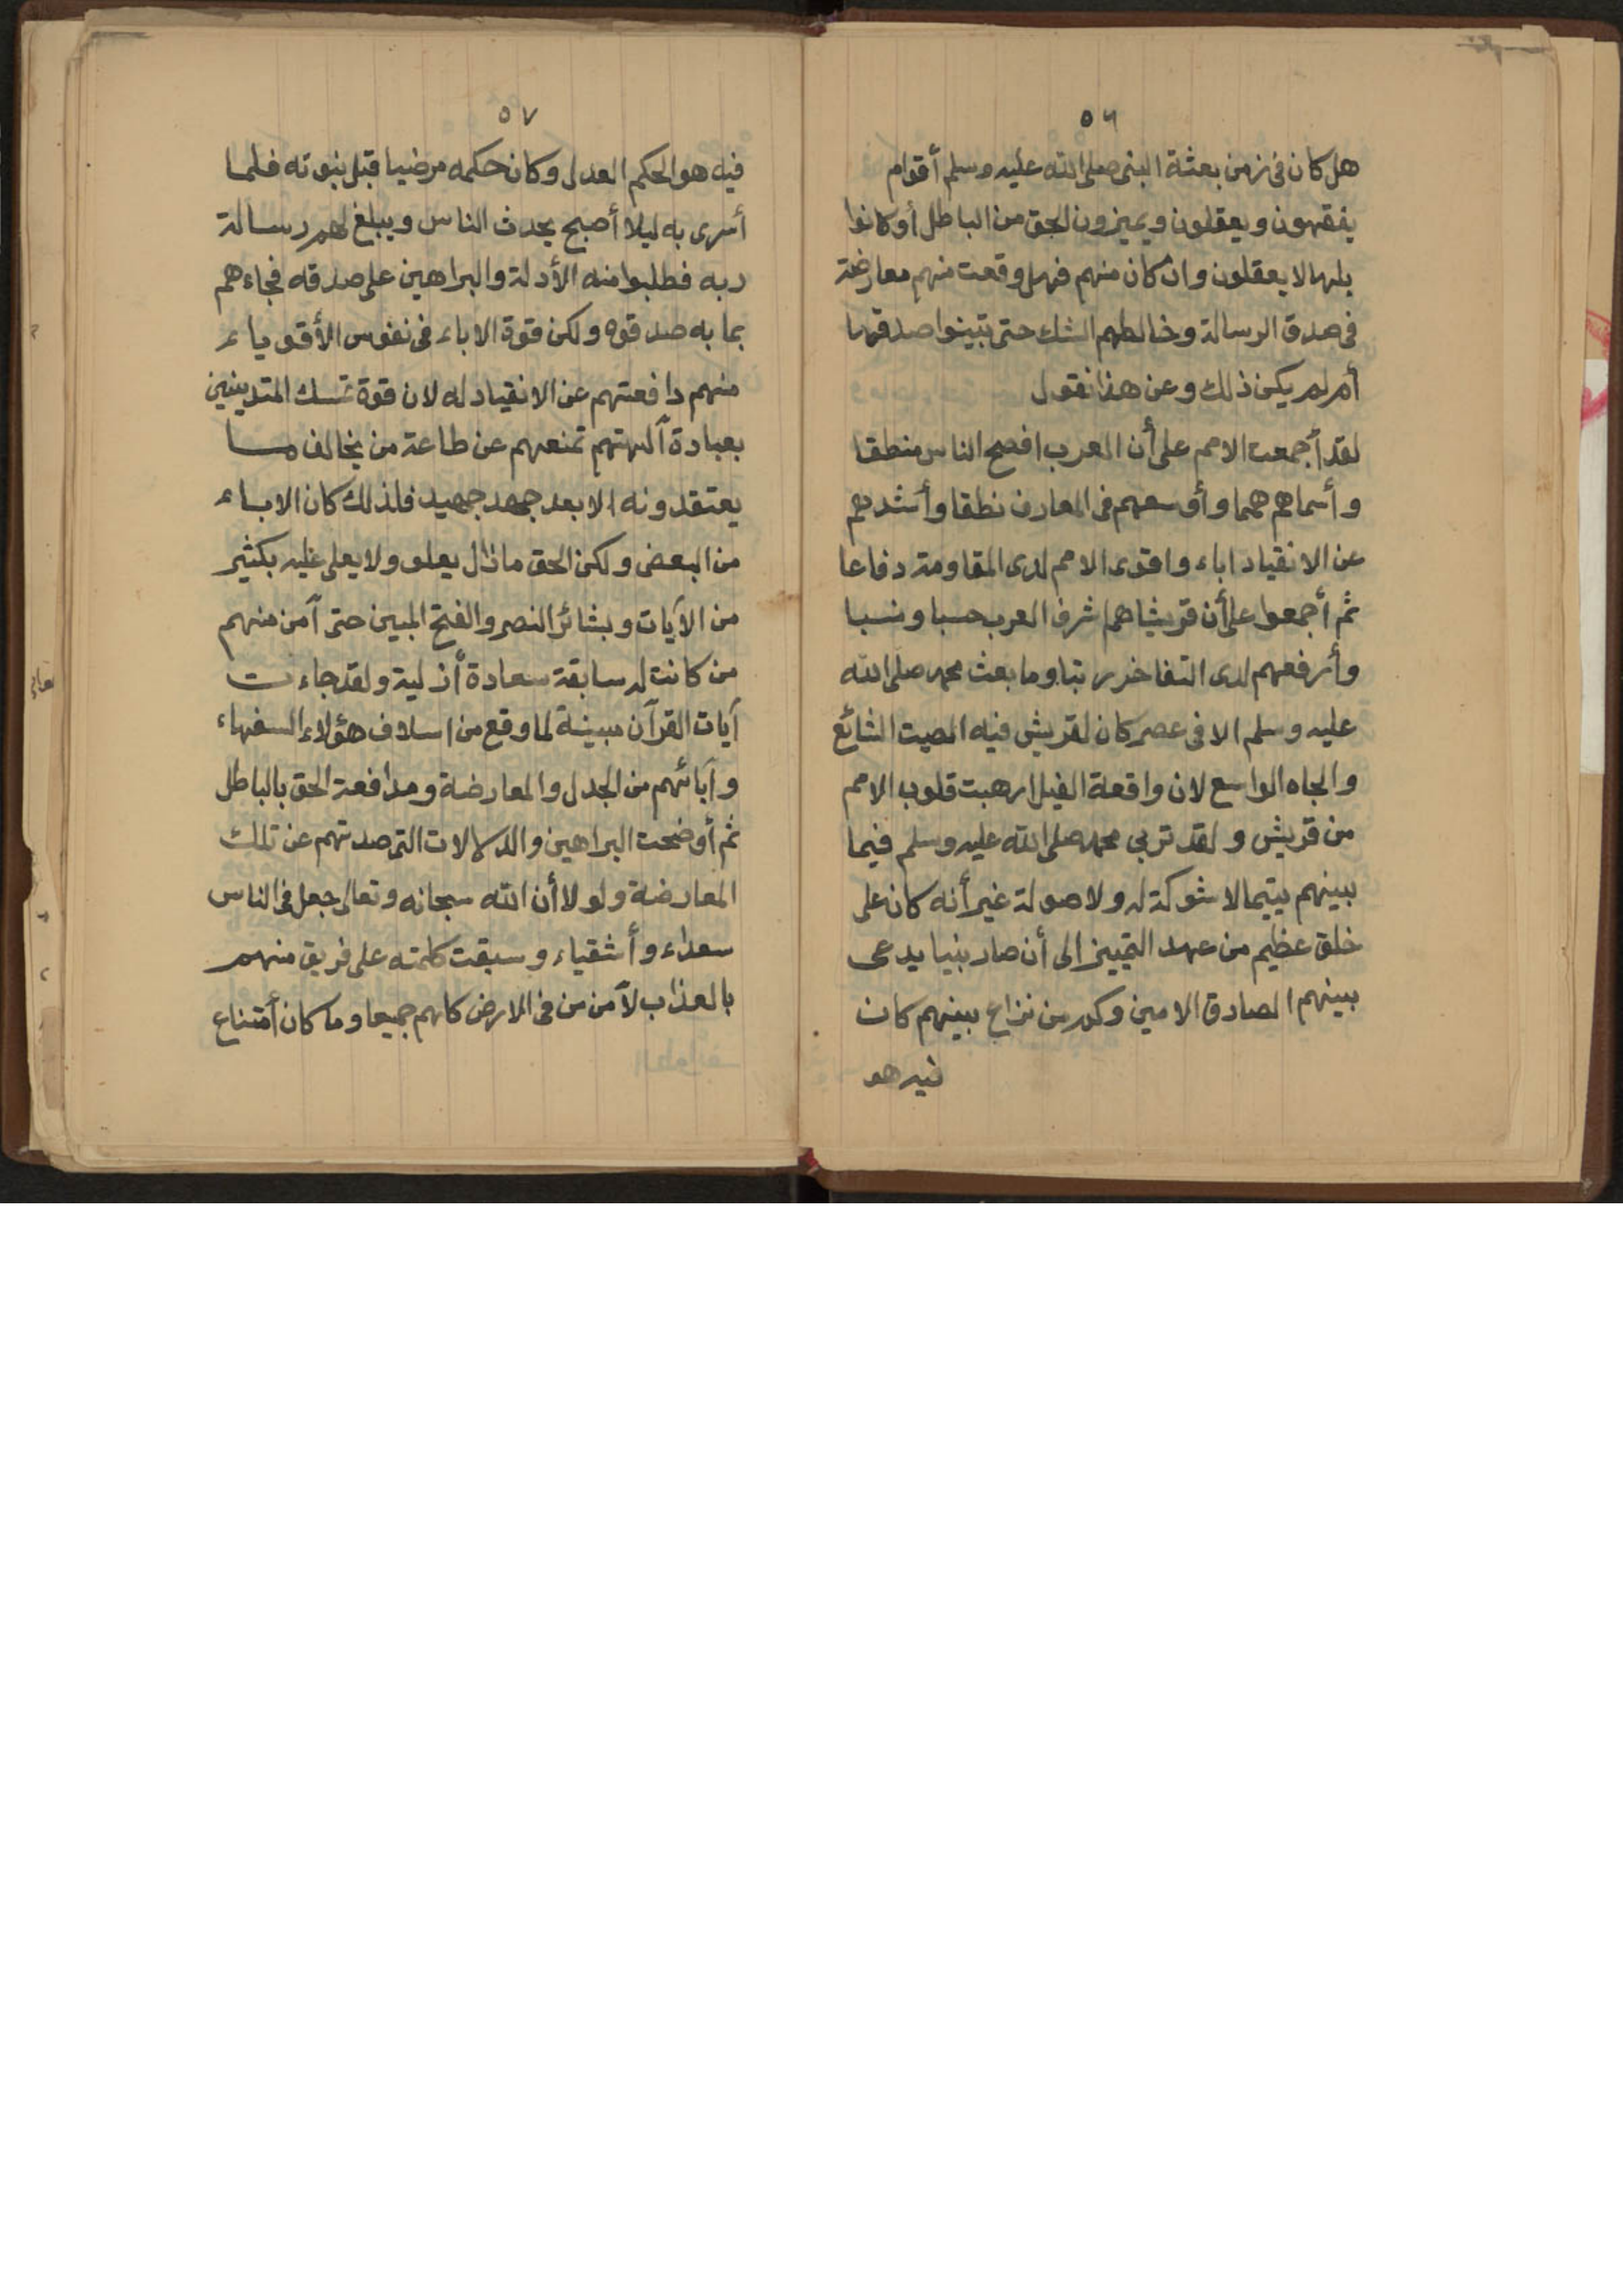 ٥٦
هل كان فى زمن بعثة النبى صلى الله عليه وسلم أقوام
يفقهون ويعقلون ويميزون الحق من الباطل أو كانوا
بلها لا يعقلون وان كان منهم فهل وقعت منهم معارضة
فى صدق الرسالة وخالطهم الشك حتى تبينوا صدقها
أم لم يكن ذلك وعن هذا نقول
لقد أجمعت الامم على أن العرب افصح الناس منطقا
وأسماهم همما وأوسعهم فى المعارف نطقا وأشدهم
عن الانقياد اباء واقوى الامم لدى المقاومة دفاعا
ثم أجمعوا على أن قريشا هم اشرف العرب حسبا ونسبا
وأرفعهم لدى التفاخر رتبا وما بعث محمد صلى الله
عليه وسلم الا فى عصر كان لقريش فيه الصيت الشائع
والجاه الواسع لان واقعة الفيل ارهبت قلوب الامم
من قريش ولقد تربى محمد صلى الله عليه وسلم فيما
بينهم يتيما لا شوكة له ولا صولة غير أنه كان على
خلق عظيم من عهد التمييز الى أن صار نبيا يدعى
بينهم الصادق الامين وكم من نزاع بينهم كان
فيه هو
٥٧
فيه هو الحكم العدل وكان حكمه مرضيا قبل نبوته فلما
أسرى به ليلا أصبح يحدث الناس ويبلغ لهم رسالة
ربه فطلبوا منه الأدلة والبراهين على صدقه فجاءهم
بما به صدقوه ولكن قوة الاباء فى نفوس الأقوياء
منهم دافعتهم عن الانقياد له لان قوة تمسك المتدينين
بعبادة آلهتهم تمنعهم عن طاعة من يخالف ما
يعتقدونه الا بعد جهد جهيد فلذلك كان الاباء
من البعض ولكن الحق مازال يعلو ولا يعلى عليه بكثير
من الآيات وبشائر النصر والفتح المبين حتى آمن منهم
من كانت له سابقة سعادة أزلية ولقد جاءت
آيات القرآن مبينة لما وقع من اسلاف هؤلاء السفهاء
وآبائهم من الجدل والمعارضة ومدافعة الحق بالباطل
ثم أوضحت البراهين والدلالات التى صدتهم عن تلك
المعارضة ولولا أن الله سبحانه وتعالى جعل فى الناس
سعداء وأشقياء وسبقت كلمته على فريق منهم
بالعذاب لآمن من فى الارض كلهم جميعا وما كان أمتناع